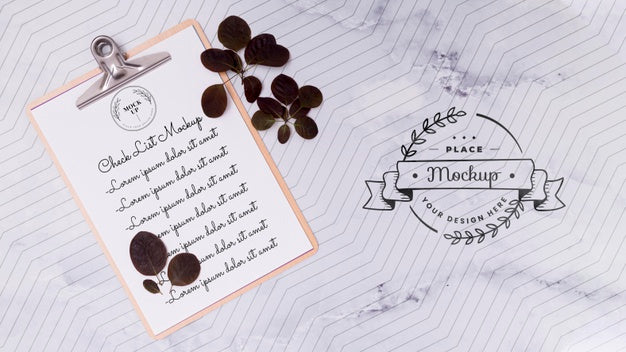 MOCK
UP
Check List Mockup
-Lorem ipsum dolor sit amet
-Lorem ipsum dolor sit amet.
-Lorem ipsum dolor sit amet.
-Lorem ipsum dolor sit amet.
-Lorem ipsum dolor sit amet.
Lorem ipsum dolor sit amet.
-Lorem ipsum dolor sit amet.
PLACE
Mockup
YOUR DESIGN HERE